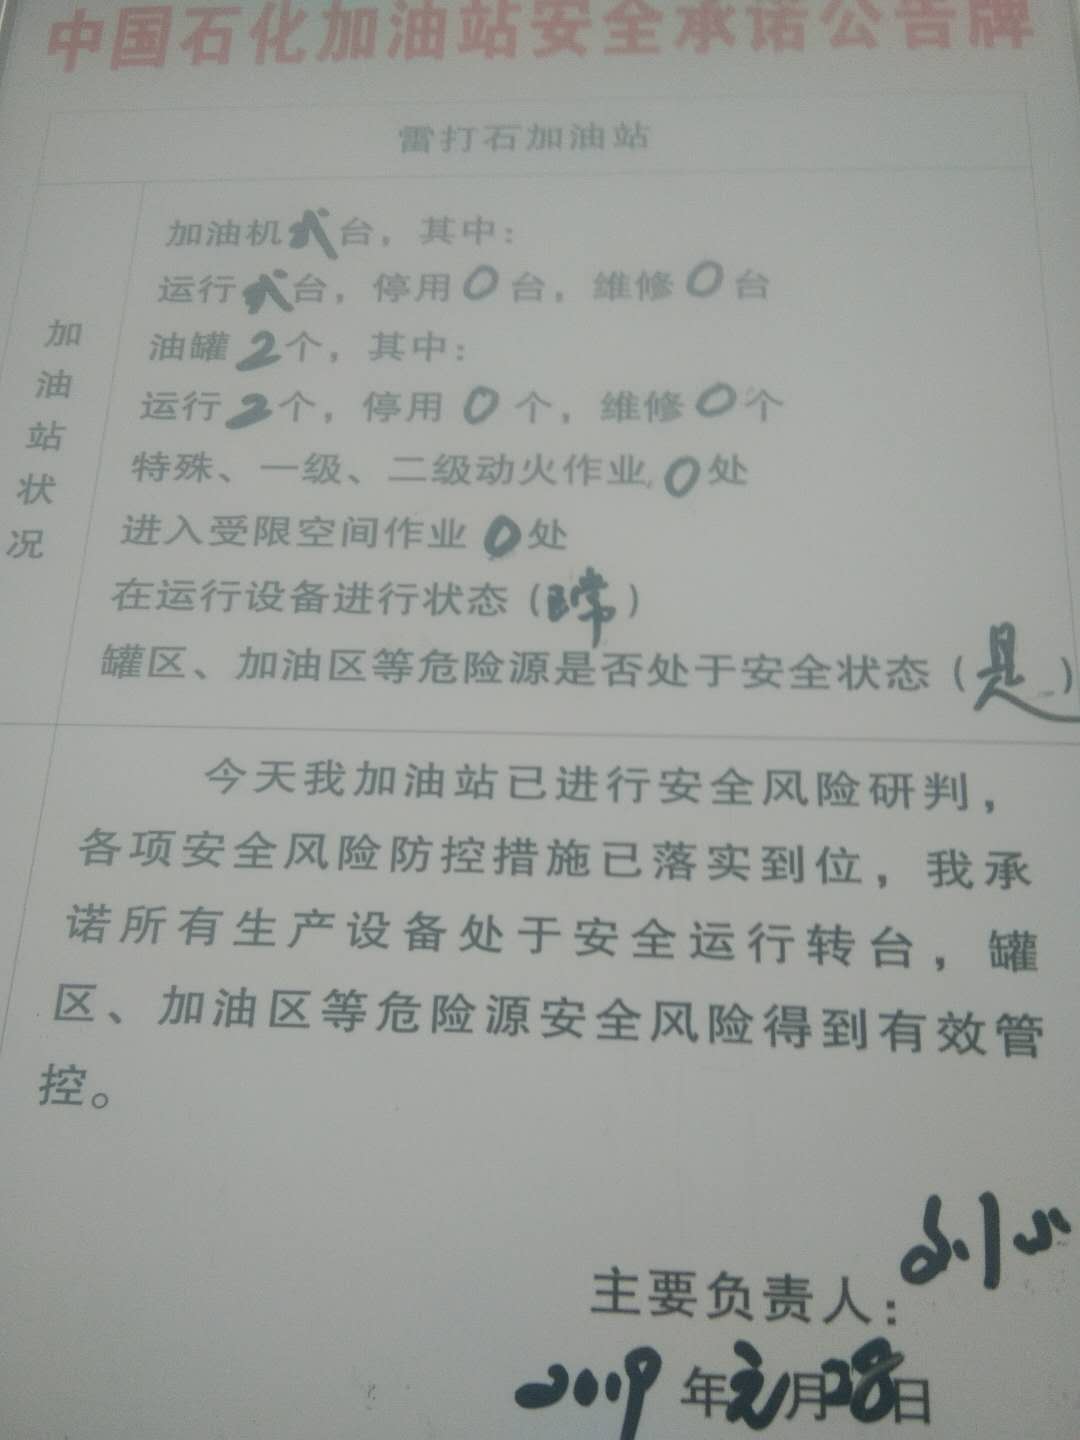 中国石化加油站安全承诺公告牌
雷打石加油站
加油站状况
加油机弍台，其中：
运行弍台，停用0台，维修0台
油罐2个，其中：
运行2个，停用0个，维修0个
特殊、一级、二级动火作业0处
进入受限空间作业0处
在运行设备进行状态（正常）
罐区、加油区等危险源是否处于安全状态（是）
今天我加油站已进行安全风险研判，
各项安全风险防控措施已落实到位，我承
诺所有生产设备处于安全运行转台，罐
区、加油区等危险源安全风险得到有效管
控。
主要负责人：刘小
2019年元月28日